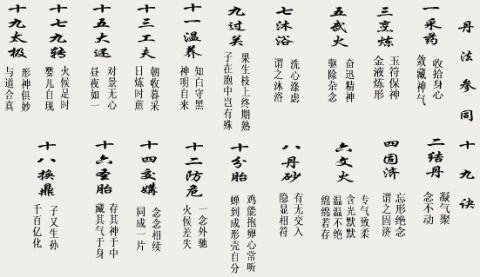 丹法参同十九诀
一采药
收拾身心
敛藏神气
二结丹
凝气聚
念不动
三烹炼
玉符保神
金液炼形
四固济
忘形绝念
谓之固济
五武火
奋迅精神
驱除杂念
六文火
专气致柔
含光默默
温温不绝
绵绵若存
七沐浴
洗心涤虑
谓之沐浴
八丹砂
有无交入
隐显相符
九过关
果生枝上终期熟
子在胞中岂有殊
十分胎
鸡能抱卵心常听
蝉到成形壳自分
十一温养
知白守黑
神明自来
十二防危
一念外驰
火候差失
十三工夫
朝收暮采
日炼时蒸
十四交媾
念念相续
同成一片
十五大还
对景无心
昼夜如一
十六圣胎
存其神于中
藏其气于身
十七九转
火候足时
婴儿自现
十八换鼎
子又生孙
千百亿化
十九太极
形神俱妙
与道合真